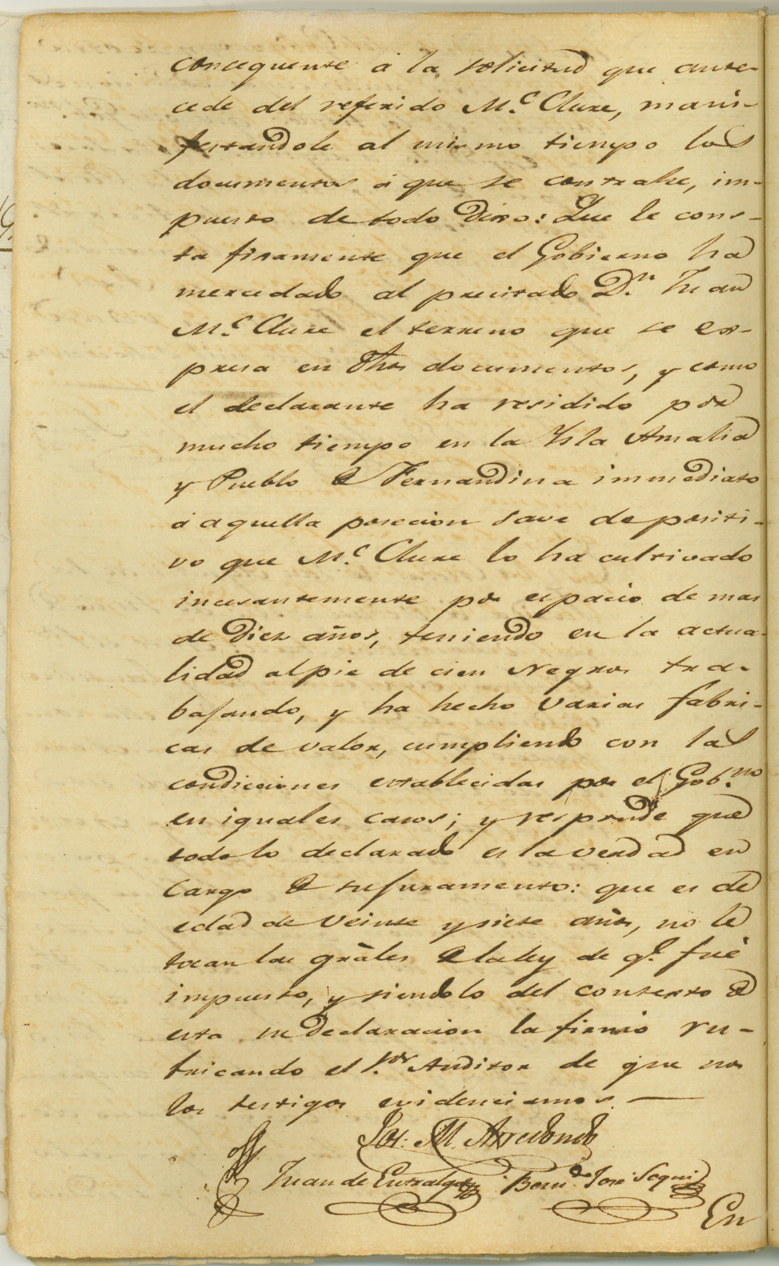 concequente á la solicitud que ante-
cede del referido M.c Clure, mani-
festandole al mismo tiempo los
documentos á que se contrahe, im-
puesto de todo Dixo: Que le cons-
ta fixamente que el Gobierno ha
mercedado al precitado D.n Juan
M.c Clure el terreno que se ex-
presa en dhos documentos, y como
el declarante ha residido por
mucho tiempo en la Ysla Amalia
y Pueblo de Fernandina immediato
á aquella posecion save de positi-
vo que M.c Clure lo ha cultivado
incesantemente por espacio de mas
de Diez años, teniendo en la actua-
lidad al pie de cien Negros tra-
bajando, y ha hecho varias fabri-
cas de valor, cumpliendo con las
condiciones establecidas por el Gob.no
en iguales casos; y responde que
todo lo declarado es la verdad en
cargo de su juramento: que es de
edad de veinte y siete años, no le
tocan las grales de la ley de q.e fué
impuesto, y siendolo del contexto de
esta su declaracion la firmó ru-
bricando el S.or Auditor de que nos
los testigos evidenciamos. —
Jos. M. Arredondo
Juan de Entralgo Bern.do José Segui
En